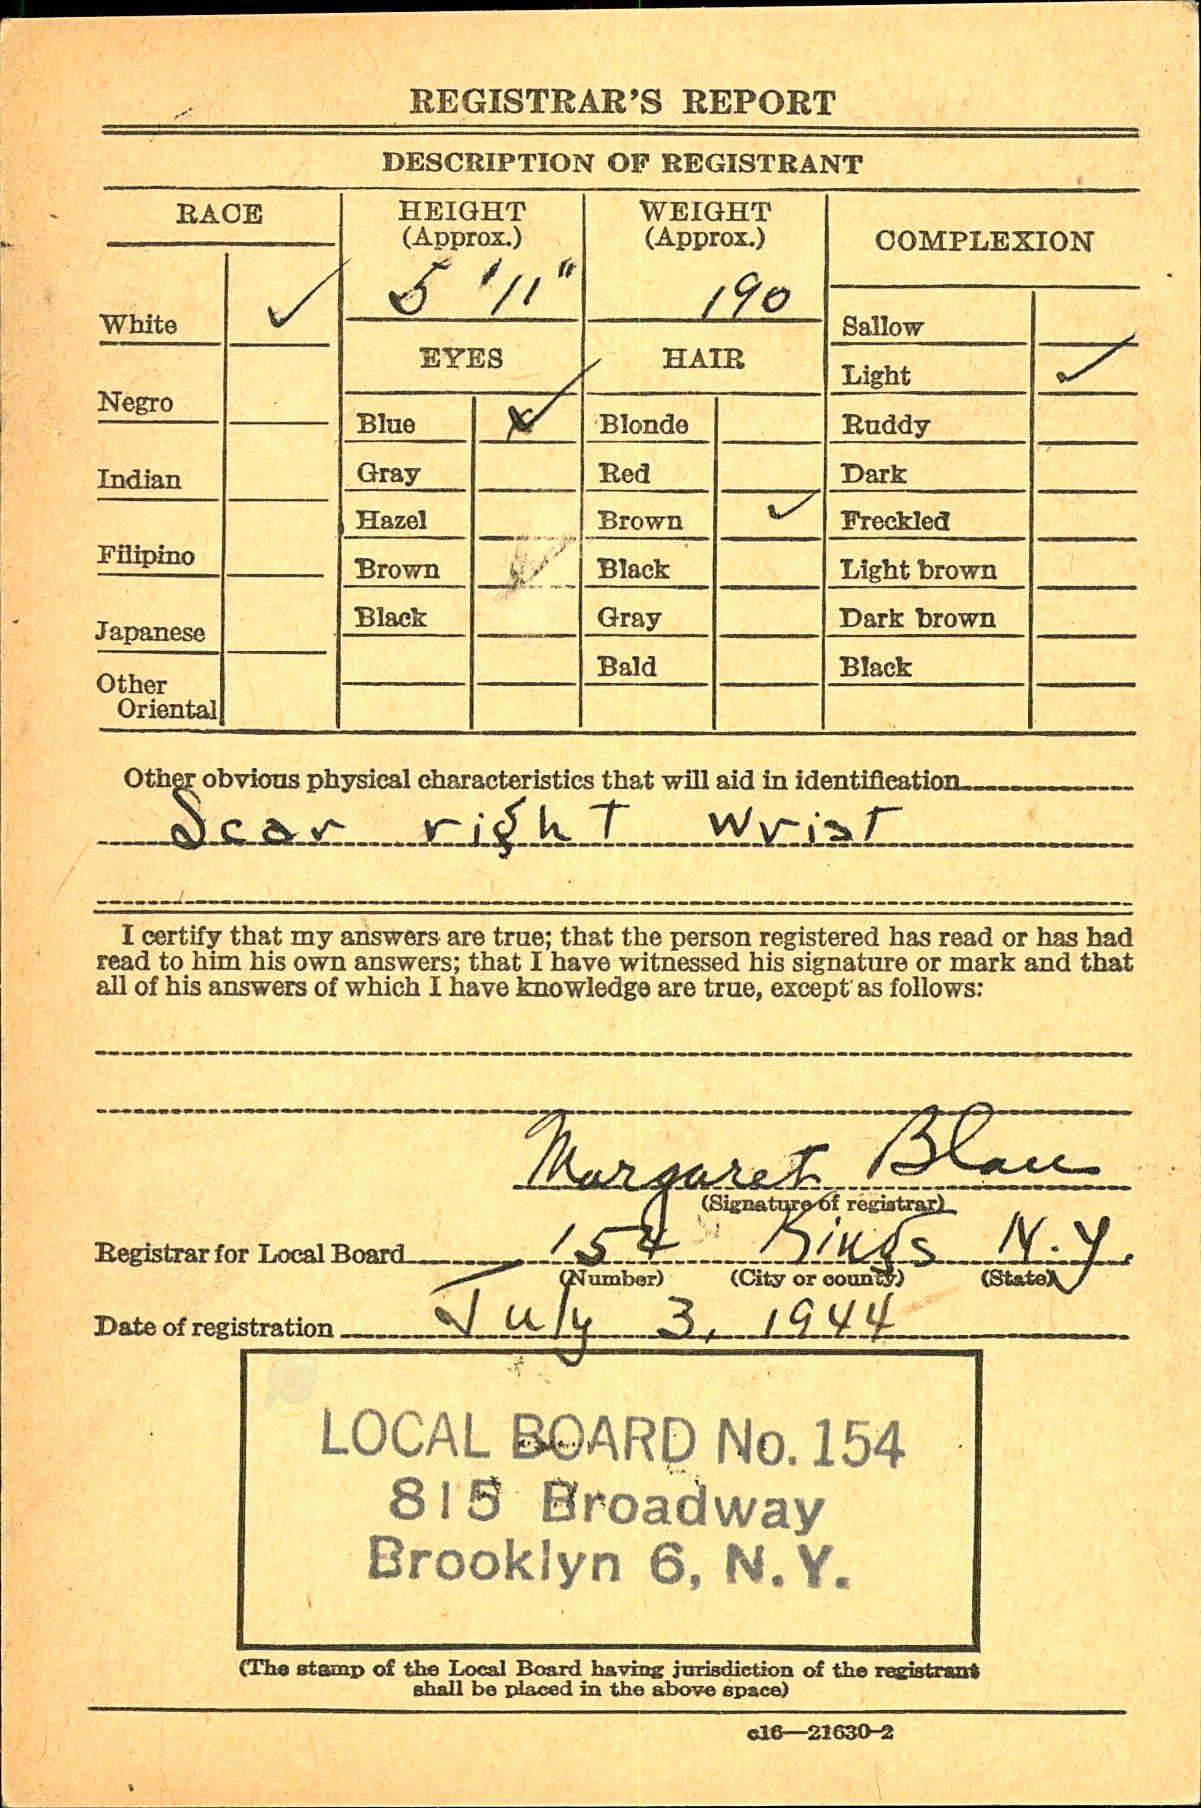 REGISTRAR'S REPORT
DESCRIPTION OF REGISTRANT
RACE
White ✓
Negro
Indian
Filipino
Japanese
Other
Oriental
HEIGHT
(Approx.)
5'11"
EYES
Blue ✓
Gray
Hazel
Brown
Black
WEIGHT
(Approx.)
190
HAIR
Blonde
Red
Brown ✓
Black
Gray
Bald
COMPLEXION
Sallow
Light ✓
Ruddy
Dark
Freckled
Light brown
Dark brown
Black
Other obvious physical characteristics that will aid in identification
Scar right wrist
I certify that my answers are true; that the person registered has read or has had
read to him his own answers; that I have witnessed his signature or mark and that
all of his answers of which I have knowledge are true, except as follows:
Margaret Blau
(Signature of registrar)
Registrar for Local Board 154 Kings N.Y.
(Number) (City or county) (State)
Date of registration July 3, 1944
LOCAL BOARD No. 154
815 Broadway
Brooklyn 6, N.Y.
(The stamp of the Local Board having jurisdiction of the registrant
shall be placed in the above space)
c16—21630-2